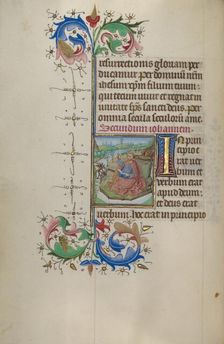 resurrectionis gloriam per
ducamur. per dominum nrm
ihesum xpm filium tuum:
qui tecum vivit et regnat in
unitate sps sancti deus. per
omnia secula seculorū amē
Secundum iohannem
In prin
cipio e
rat ver
bum et
verbum erat
apud deum:
et deus erat
verbum. hoc erat in principio